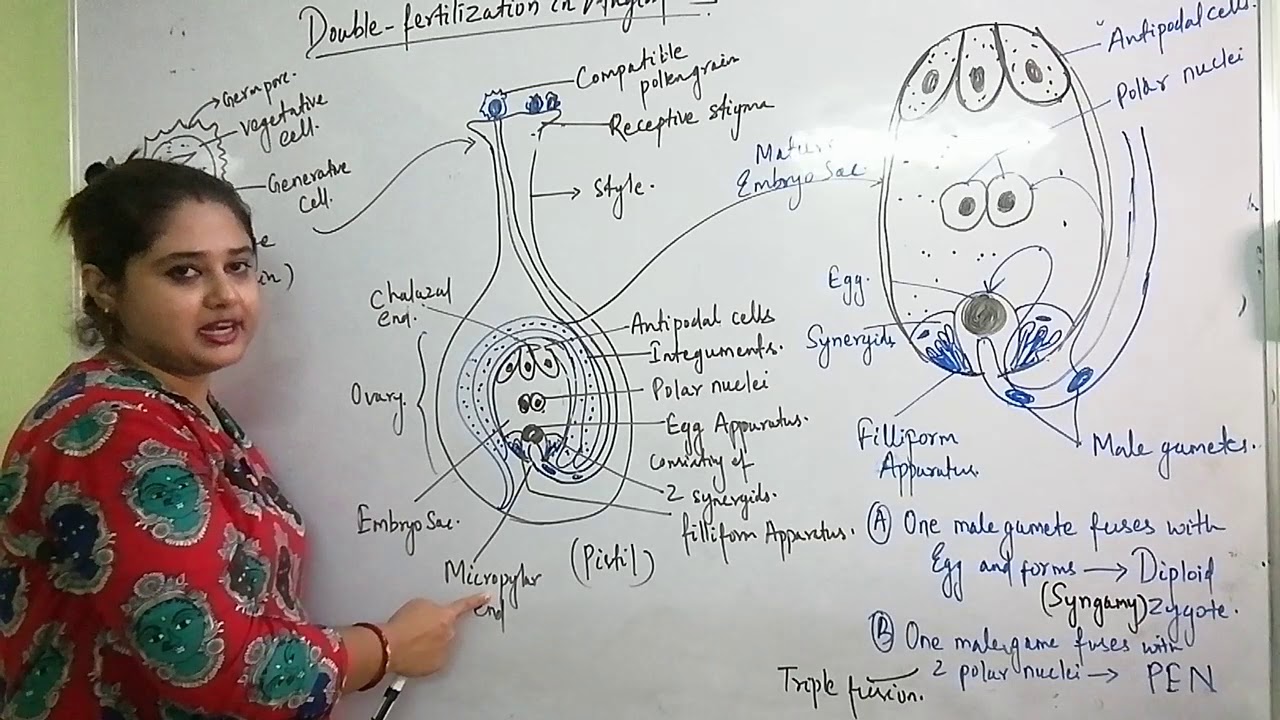 Double-fertilization in
Germpore.
vagetative
cell.
Generative
cell.
Compatible
pollengrain
Receptive stigma
style.
Chalazal
end.
Ovary.
Embryo Sac.
Micropylar
end
(Pistil)
Antipodal cells
Integuments.
Polar nuclei
Egg Apparatus.
Consisting of
2 synergids.
filliform Apparatus.
Antipodal cells.
Polar nuclei
Mature
Embryo Sac
Egg.
Synergids
Filliform
Apparatus.
Male gametes.
(A) One male gamete fuses with
Egg and forms → Diploid
(Syngamy) Zygote.
(B) One male game fuses with
2 polar nuclei → PEN
Triple fusion.